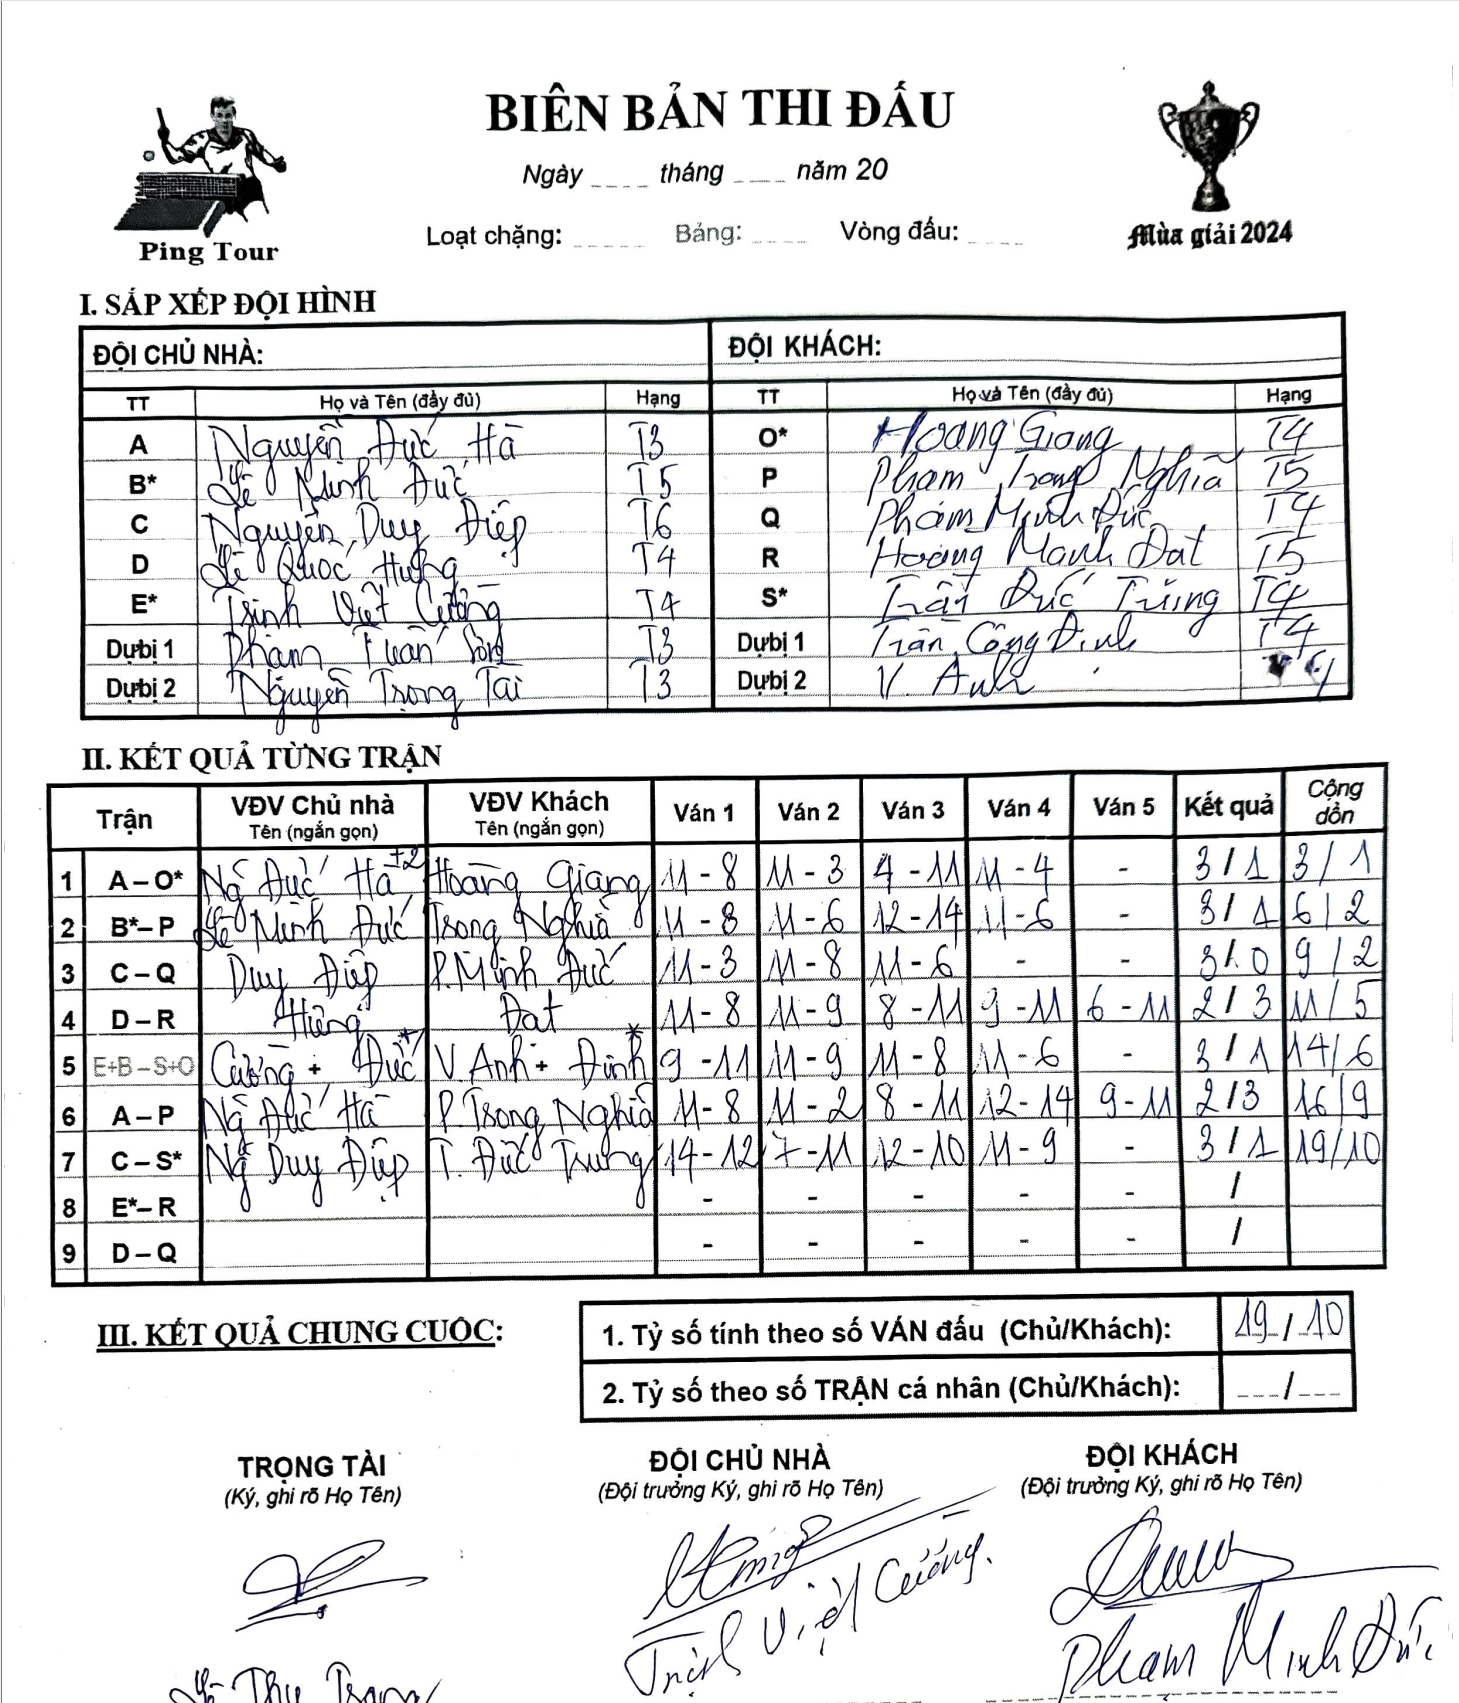 BIÊN BẢN THI ĐẤU
Ngày ____ tháng ____ năm 20
Loạt chặng: _____ Bảng: ____ Vòng đấu: ____
Ping Tour
Mùa giải 2024
I. SẮP XẾP ĐỘI HÌNH
ĐỘI CHỦ NHÀ: ĐỘI KHÁCH:
TT Họ và Tên (đầy đủ) Hạng TT Họ và Tên (đầy đủ) Hạng
A Nguyễn Đức Hà T3 O* Hoàng Giang T4
B* Lê Minh Đức T5 P Phạm Trọng Nghĩa T5
C Nguyễn Duy Điệp T6 Q Phạm Minh Đức T4
D Lê Quốc Hưng T4 R Hoàng Mạnh Đạt T5
E* Trịnh Việt Cường T4 S* Trần Đức Trung T4
Dự bị 1 Phạm Tuấn Sơn T3 Dự bị 1 Trần Công Định T4
Dự bị 2 Nguyễn Trọng Tài T3 Dự bị 2 V. Anh
II. KẾT QUẢ TỪNG TRẬN
Trận VĐV Chủ nhà Tên (ngắn gọn) VĐV Khách Tên (ngắn gọn) Ván 1 Ván 2 Ván 3 Ván 4 Ván 5 Kết quả Cộng dồn
1 A – O* Ng Đức Hà +2 Hoàng Giang 11 - 8 11 - 3 4 - 11 11 - 4 - 3 / 1 3 / 1
2 B* – P Lê Minh Đức Trọng Nghĩa 11 - 8 11 - 6 12 - 14 11 - 6 - 3 / 1 6 / 2
3 C – Q Duy Điệp P. Minh Đức 11 - 3 11 - 8 11 - 6 - - 3 / 0 9 / 2
4 D – R Hưng Đạt 11 - 8 11 - 9 8 - 11 9 - 11 6 - 11 2 / 3 11 / 5
5 E+B – S+O Cường + Đức* V. Anh + Định* 9 - 11 11 - 9 11 - 8 11 - 6 - 3 / 1 14 / 6
6 A – P Ng Đức Hà P. Trọng Nghĩa 11 - 8 11 - 2 8 - 11 12 - 14 9 - 11 2 / 3 16 / 9
7 C – S* Ng Duy Điệp T. Đức Trung 14 - 12 7 - 11 12 - 10 11 - 9 - 3 / 1 19 / 10
8 E* – R - - - - - /
9 D – Q - - - - - /
III. KẾT QUẢ CHUNG CUỘC:
1. Tỷ số tính theo số VÁN đấu (Chủ/Khách): 19 / 10
2. Tỷ số theo số TRẬN cá nhân (Chủ/Khách): ___/___
TRỌNG TÀI ĐỘI CHỦ NHÀ ĐỘI KHÁCH
(Ký, ghi rõ Họ Tên) (Đội trưởng Ký, ghi rõ Họ Tên) (Đội trưởng Ký, ghi rõ Họ Tên)
Trịnh Việt Cường.
Phạm Minh Đức
Lê Thu Trang